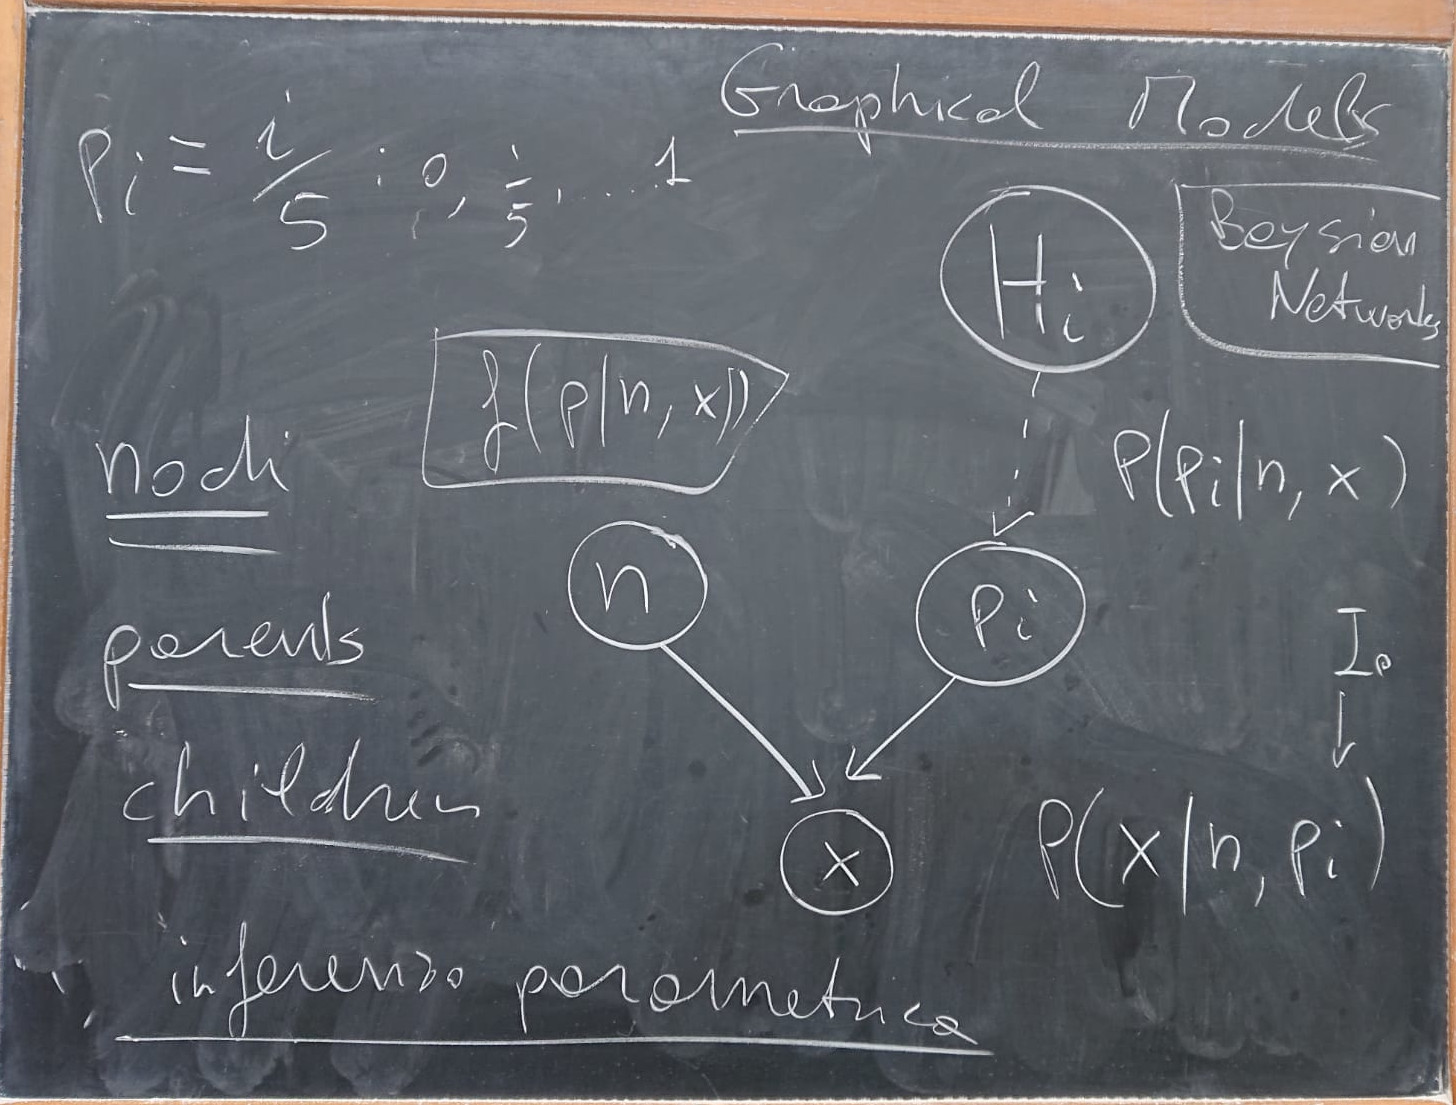 Graphical Models
pi = i/5 : 0, 1/5, ... 1
Hi
Baysian
Networks
f(p|n, x)
P(pi|n, x)
nodi
n
pi
parents
I0
↓
children
x
P(x|n, pi)
inferenza parametrica